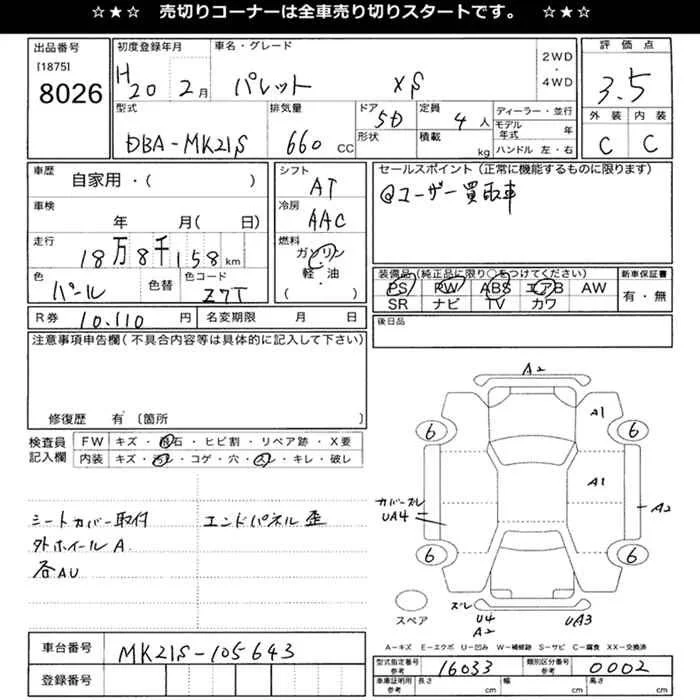 ☆★☆ 売切りコーナーは全車売り切りスタートです。 ☆★☆
出品番号 初度登録年月 車名・グレード 2WD・4WD 評価点
[1875]
8026 H20 2月 パレット XS 3.5
型式 排気量 ドア 5D 定員 4人 ディーラー・並行 外装 内装
形状 積載 kg モデル年式 年
DBA-MK21S 660 CC ハンドル 左・右 C C
車歴 自家用・( ) シフト AT セールスポイント(正常に機能するものに限ります)
@ユーザー買取車
車検 年 月( 日) 冷房 AAC
走行 18万8千158km 燃料 ガソリン・軽・油 ( )
色 パール 色替 色コード Z7T
装備品(純正品に限り○をつけてください) 新車保証書
PS PW ABS エアB AW 有・無
SR ナビ TV カワ
R券 10,110円 名変期限 月 日 後日品
注意事項申告欄(不具合内容等は具体的に記入して下さい)
修復歴 有 (箇所
検査員記入欄 FW キズ・飛石・ヒビ割・リペア跡・X要
内装 キズ・コゲ・穴・キレ・破レ
シートカバー取付 エンドパネル歪
外ホイールA
各AU
A2
6 A1 6
A1
カバーズレ
UA4 A2
6 6
スペア ズレ
U4 UA3
A2
A-キズ E-エクボ U-凹み W-補修跡 S-サビ C-腐食 XX-交換済
車台番号 MK21S-105643
登録番号
型式指定番号 参考 16033 類別区分番号 参考 0002
車庫証明用 参考 長さ cm 幅 cm 高さ cm